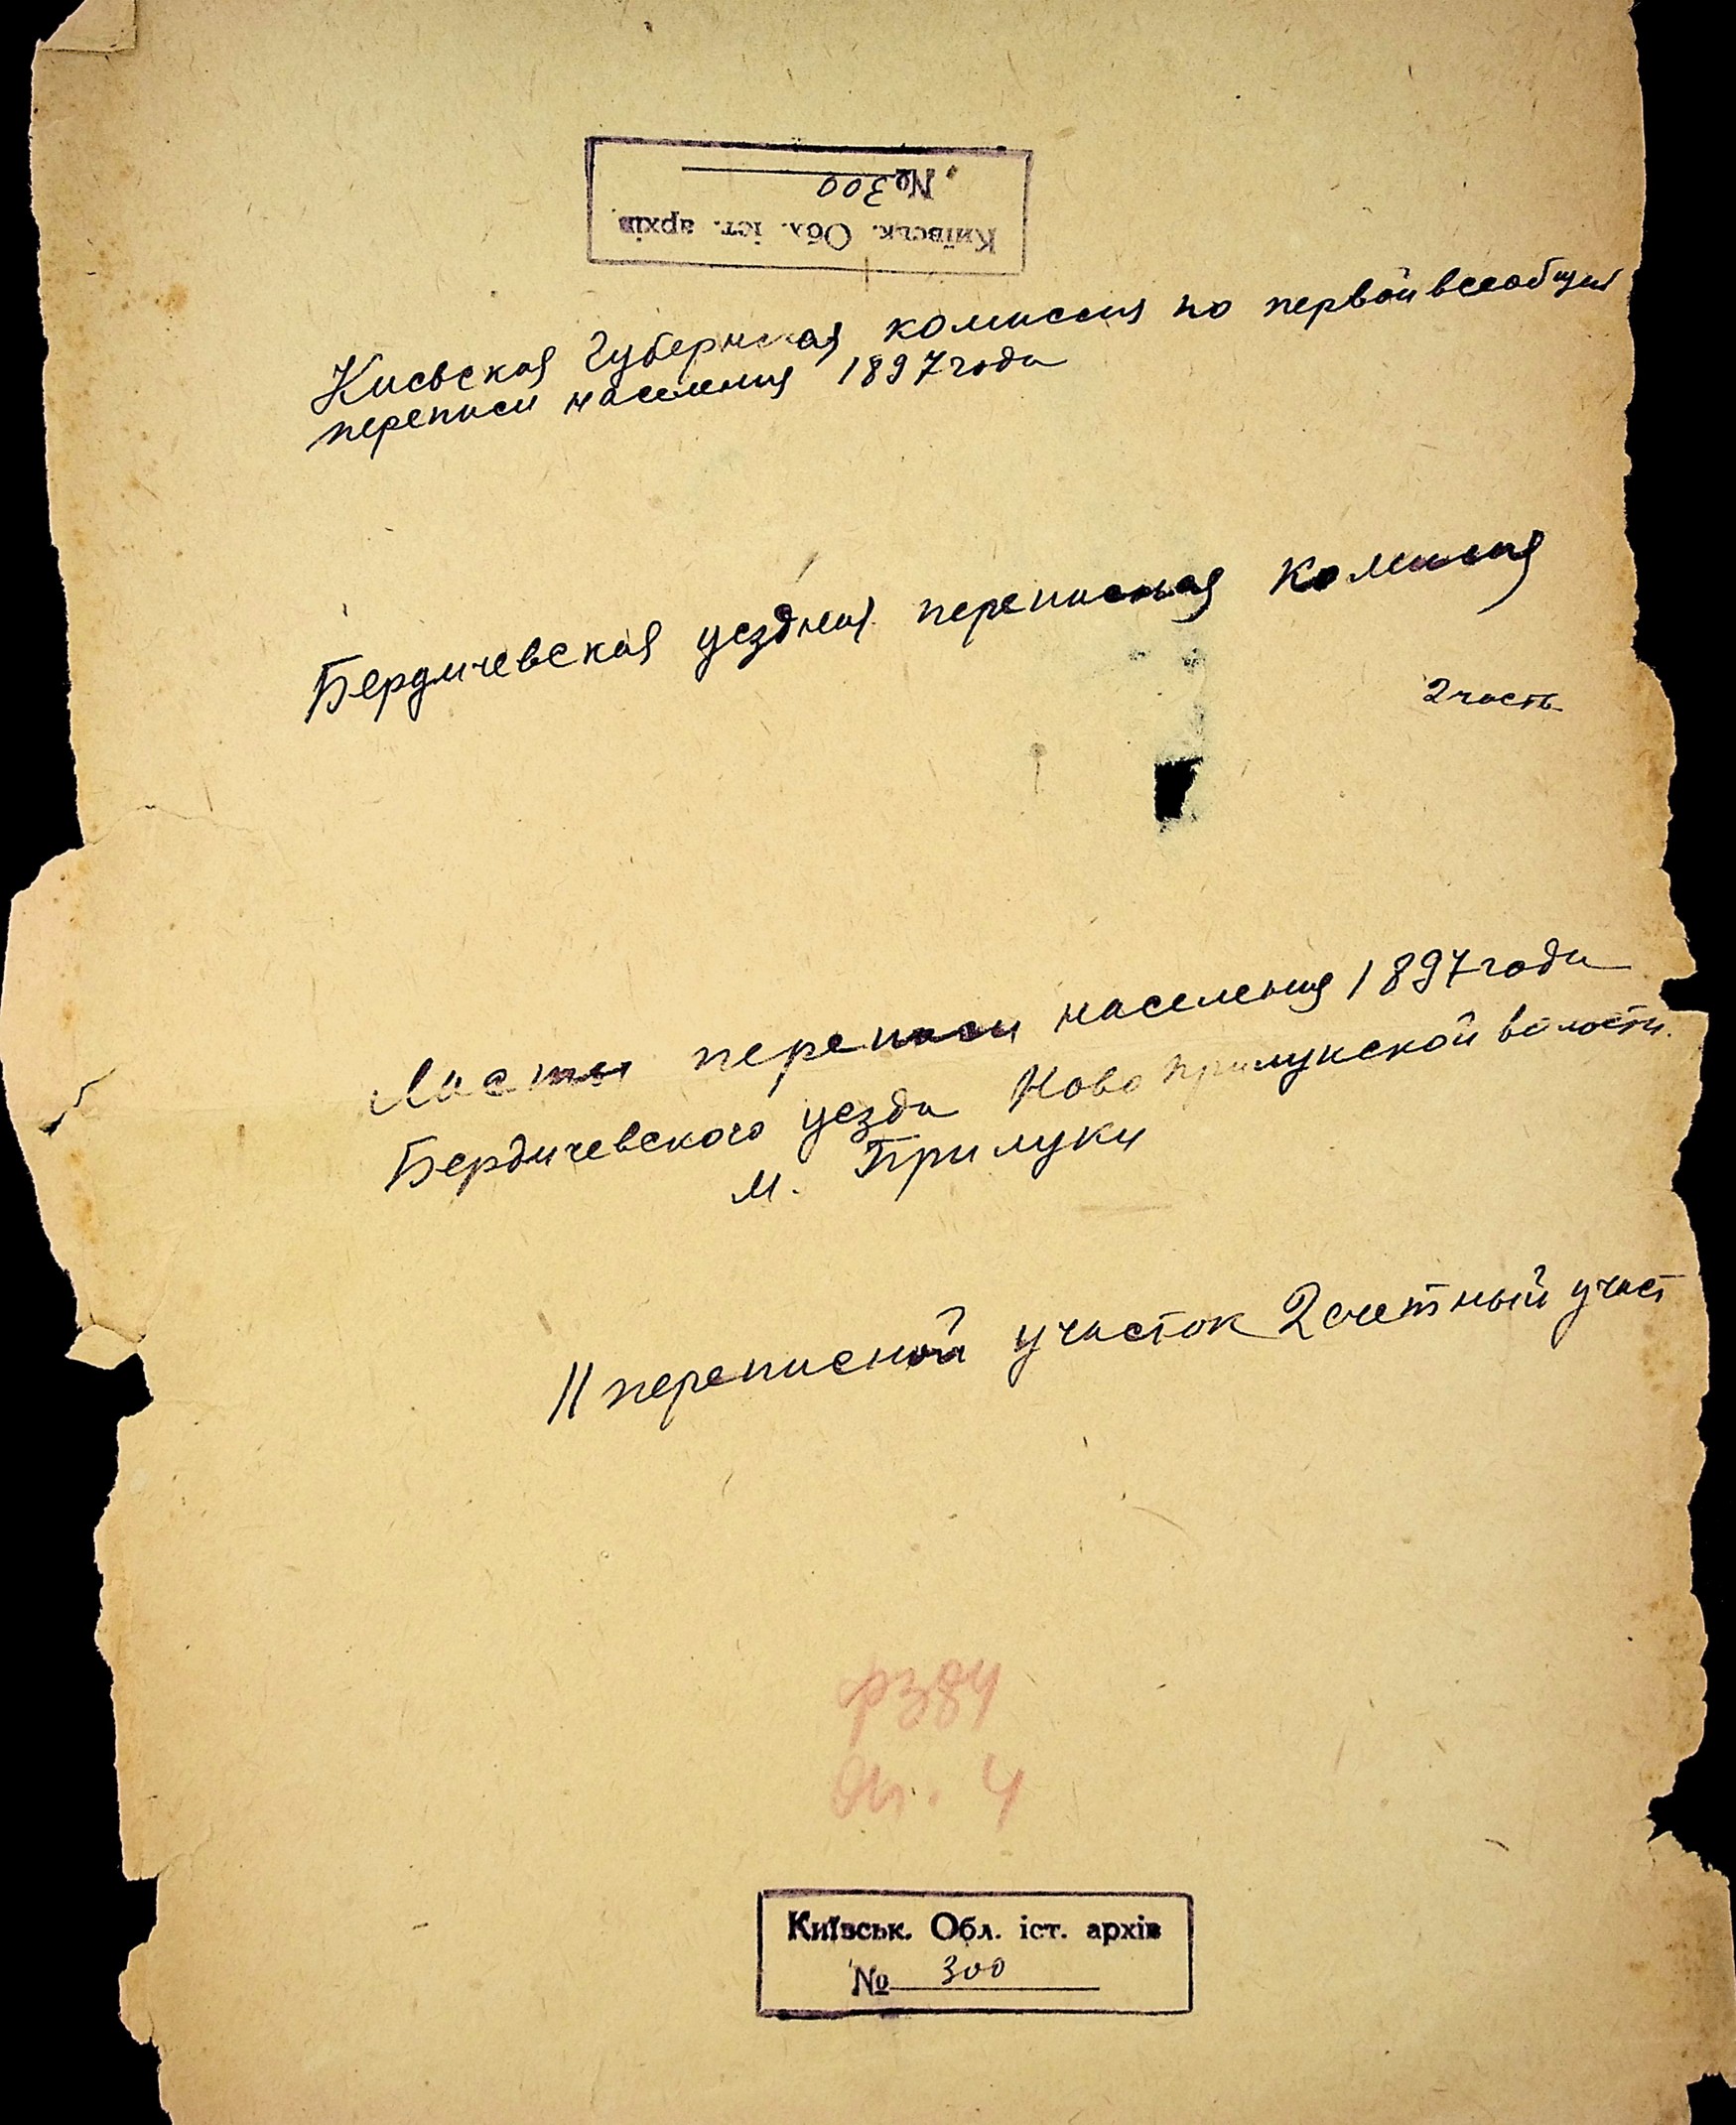 Київськ. Обл. іст. архів
№ 300
Киевская Губернская комиссия по первой всеобщей
переписи населения 1897 года
Бердичевская уездная переписная комисия
2 часть
Листы переписи населения 1897 года
Бердичевского уезда Ново Прилукской волости.
м. Прилуки
II переписной участок 2 счетный участ
ф 384
оп. 4
Київськ. Обл. іст. архів
№ 300